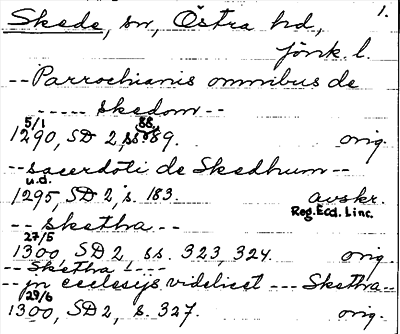 1.
Skede, sn, Östra hd,
jönk. l.
-- Parrochianis omnibus de
----- skedom --
5/1 ss.
1290, SD 2, ss 89. orig.
-- sacerdoti de Skedhum --
u.d.
1295, SD 2, s. 183. avskr.
Reg. Eccl. Linc.
-- sketha --
27/5
1300, SD 2, ss. 323, 324. orig.
-- Sketha ----
-- jn ecclesys videlicet --- Sketha --
29/6
1300, SD2, s. 327. orig.